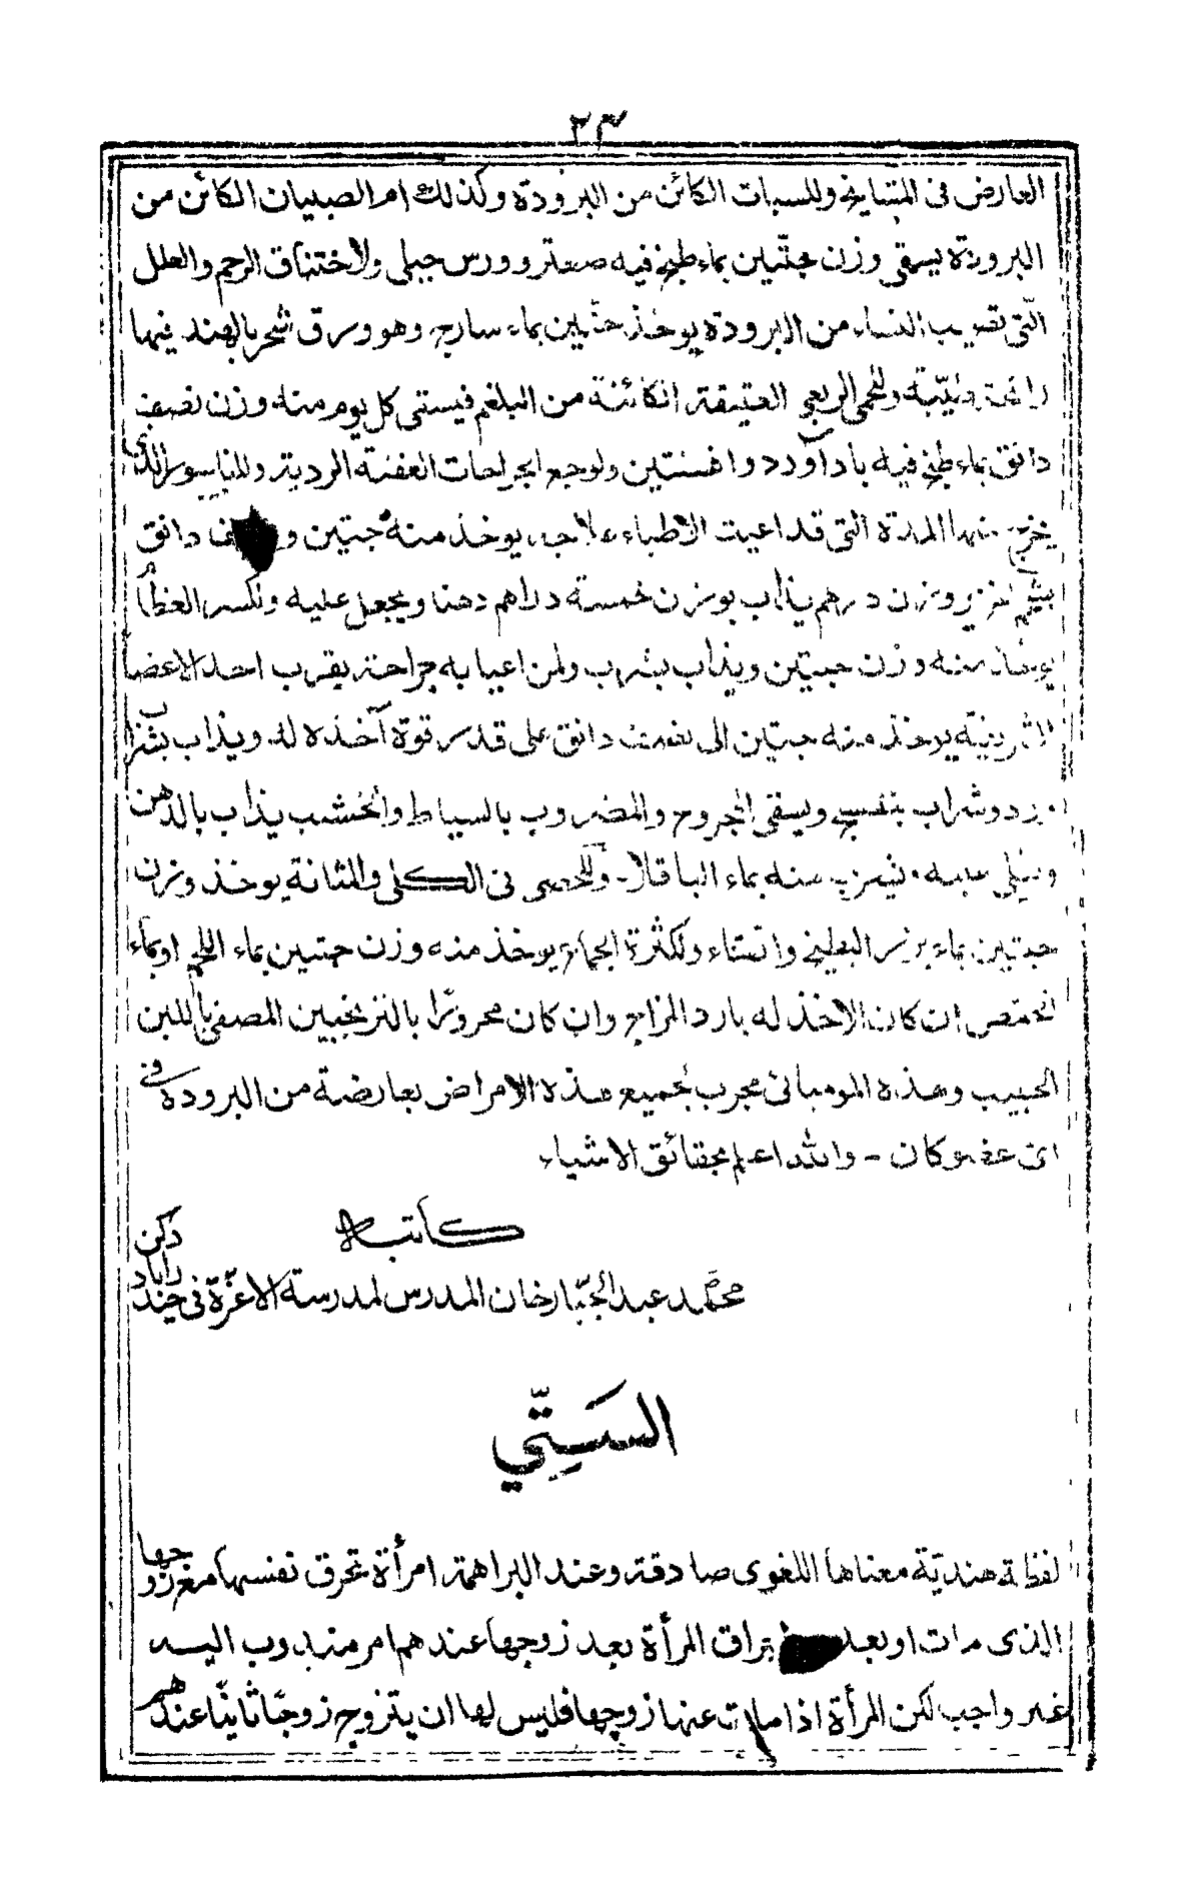 ٢٣
العارض فى المشايخ وللسبات الكائن من البرودة وكذلك ام الصبيان الكائن من
البرودة يسقى وزن حبّتين بماء طبخ فيه صعتر وورس جبلى ولاختناق الرحم والعلل
التى تصيب النساء من البرودة يوخذ حبّتين بماء سارج وهو ورق شجر بالهند فيها
رائحة طيّبة وللحمى الربعى العتيقة الكائنة من البلغم فيسقى كل يوم منه وزن نصف
دانق بماء طبخ فيه بادآورد وافسنتين ولوجع الجراحات العفنة الردية وللناسور الذى
يخرج منها المدة التى قد اعيت الاطباء علاجه يوخذ منه حبتين و دانق
وزن درهم يذاب بوزن خمسة دراهم دهنا ويجعل عليه ولكسر العظام
يوخذ منه وزن حبتين ويذاب بشرب ولمن اعيا به جراحة بقرب احد الاعضا
الشريفة يوخذ منه حبتين الى نصف دانق على قدر قوة آخذه له ويذاب بشراب
ورد وشراب بنفسج ويسقى المجروح والمضروب بالسياط والخشب يذاب بالدهن
ويطلى عليه ويشرب منه بماء الباقلا وللحصى فى الكلى والمثانة يوخذ وزن
حبتين بماء بزر البطيخ والقثاء ولكثرة الجماع يوخذ منه وزن حبتين بماء اللحم او بماء
الحمّص ان كان الاخذ له بارد المزاج وان كان محرورًا بالترنجبين المصفى باللبن
الحليب وهذه المومبائى مجرب لجميع هذه الامراض بعارضة من البرودة فى
اى عضو كان - والله اعلم بحقائق الاشياء
كاتبه
محمّد عبد الجبّار خان المدرس لمدرسة الاعزّة فى حيدراباد دكن
السَتِّي
لفظة هنديّة معناها اللغوى صادقة وعند البراهمة امرأة تحرق نفسها مع زوجها
الذى مات او بعد احتراق المرأة بعد زوجها عندهم امر مندوب اليه
غير واجب لكن المرأة اذا مات عنها زوجها فليس لها ان يتزوج زوجًا ثانيًا عندهم